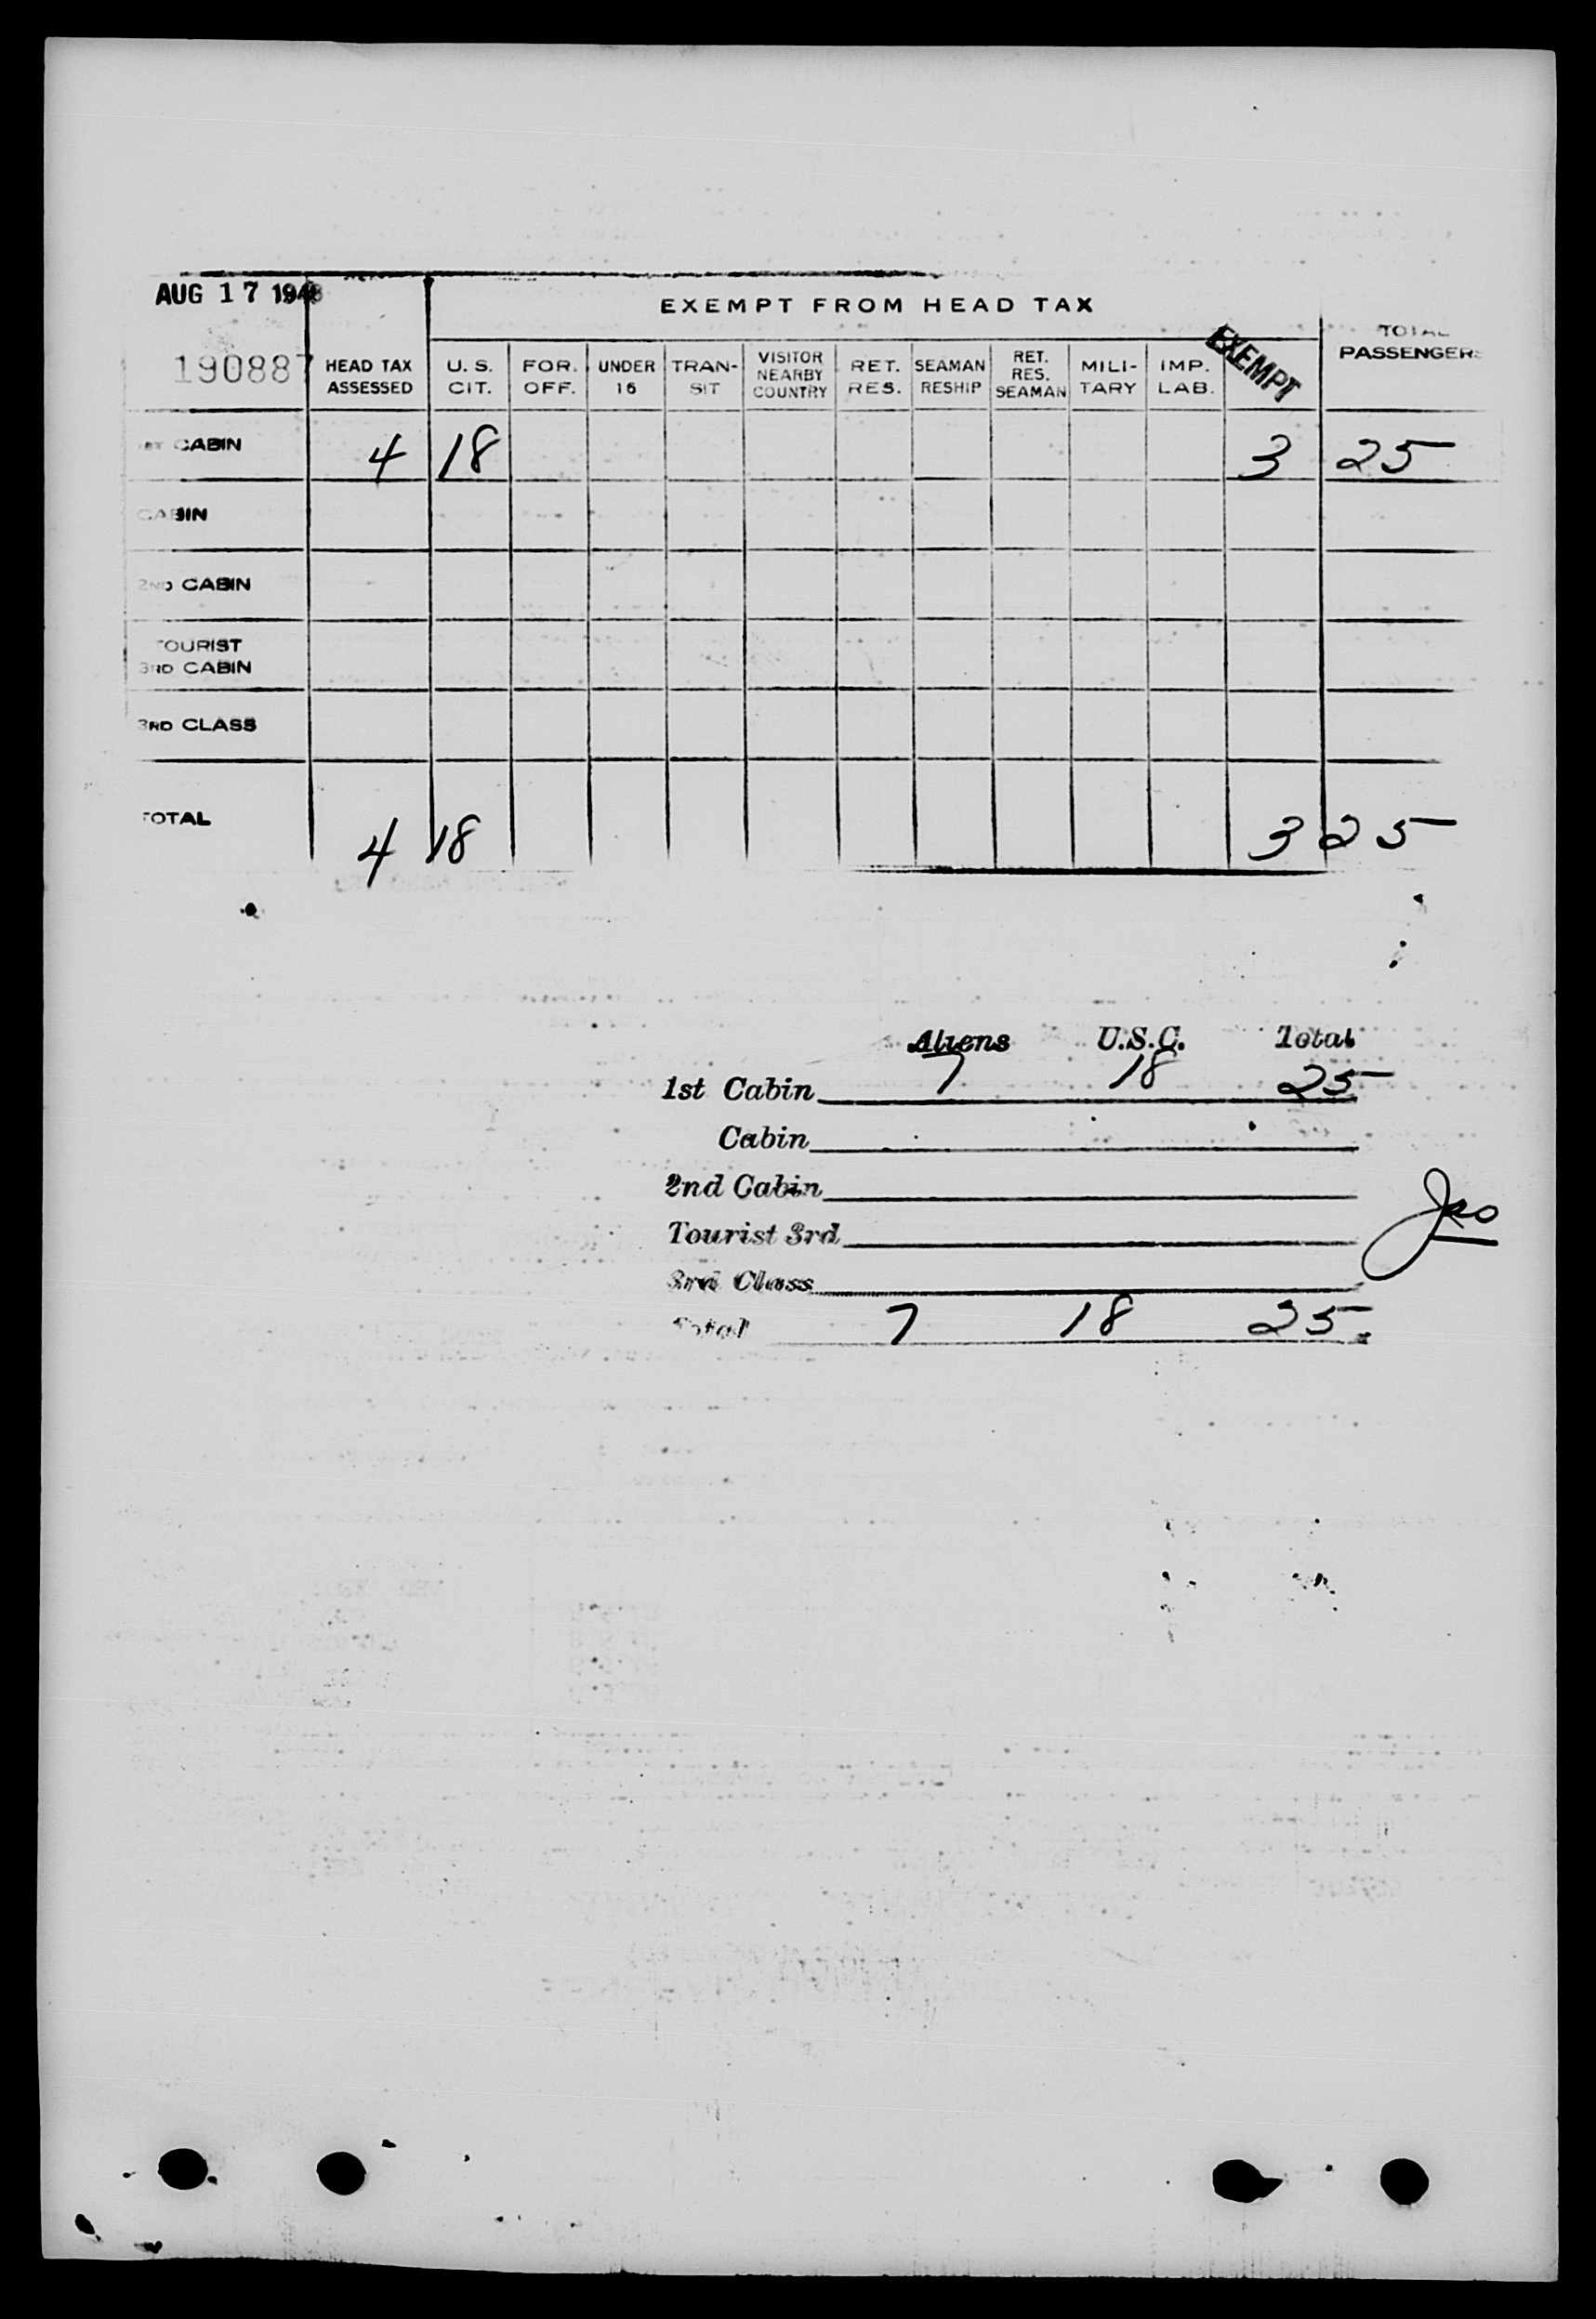 AUG 17 1948
EXEMPT FROM HEAD TAX
TOTAL PASSENGERS
190887
HEAD TAX ASSESSED U. S. CIT. FOR. OFF. UNDER 16 TRAN-SIT VISITOR NEARBY COUNTRY RET. RES. SEAMAN RESHIP RET. RES. SEAMAN MILI-TARY IMP. LAB. EXEMPT
1ST CABIN 4 18 3 25
CABIN
2ND CABIN
TOURIST
3RD CABIN
3RD CLASS
TOTAL 4 18 3 25
Aliens U.S.C. Total
1st Cabin 7 18 25
Cabin
2nd Cabin
Tourist 3rd
3rd Class
Total 7 18 25